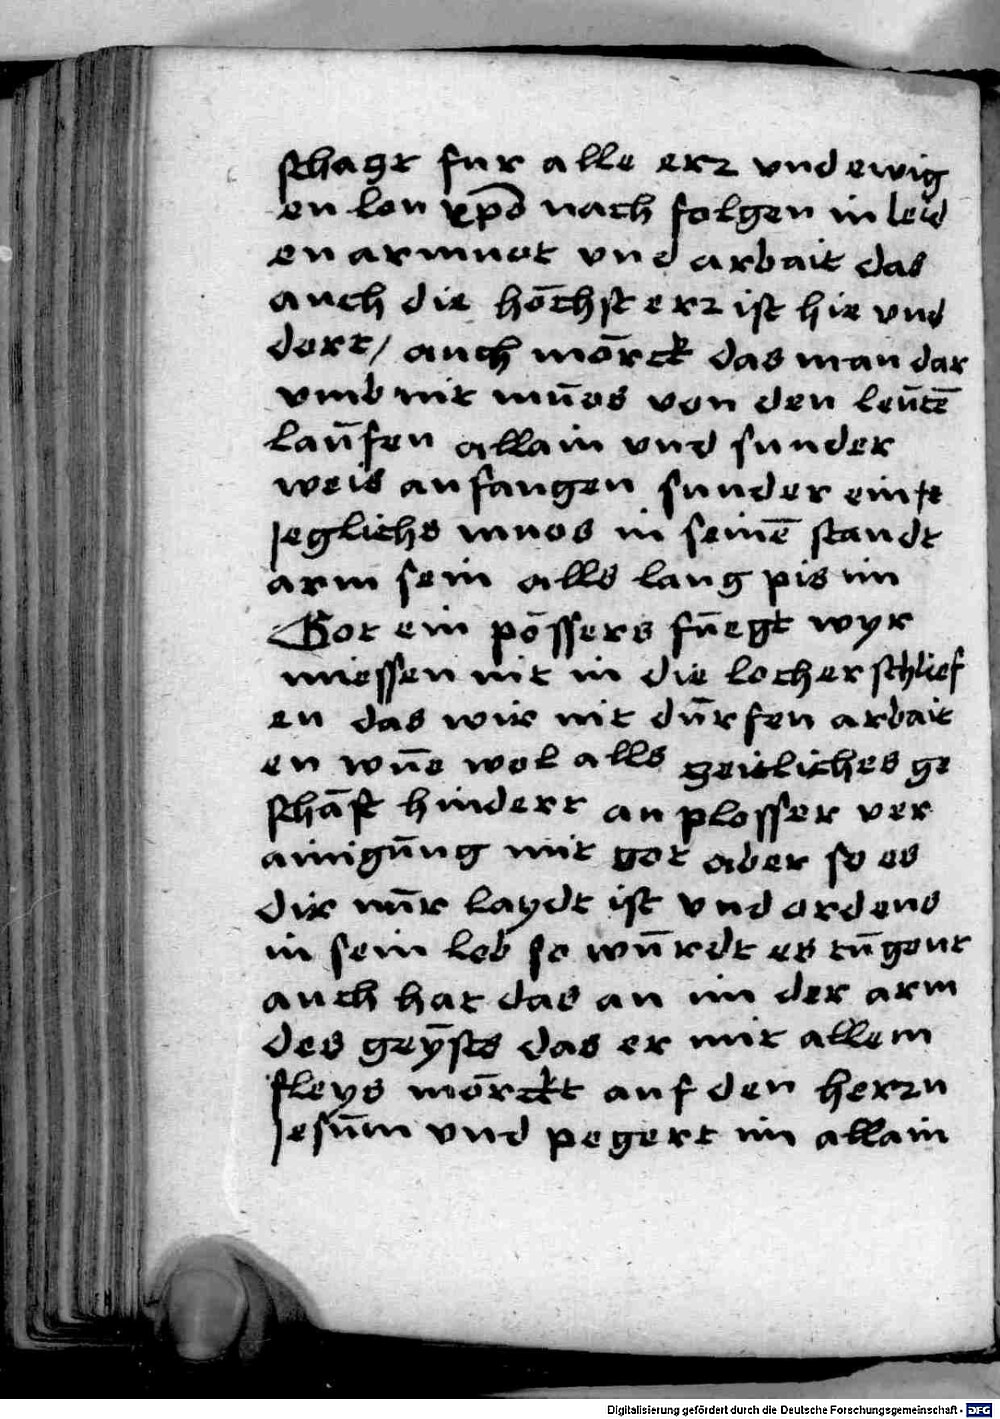 schagt fur alle erz vnd ewig
en lon xpō nach folgen in leid
en armuot vnd arbait das
auch die hōchst erz ist hie vnd
dort / auch mörck das man dar
vmb nit mūos von den leūtē
laūfen allain vnd sunder
weis anfangen sunder ein
jeglichs muos in seinē standt
arm sein alls lang pis im
Got ein pössers fūegt wyr
miessen nit in die locher schlief
en das wir nit dūrfen arbait
en wūe wol alls geitliches ge
schäft hindert an plosser ver
ainigūng mit got aber so es
dir nūr laydt ist vnd ordens
in sein lob so wūrdt es tūgent
auch hat das an im der arm
des geÿsts das er mit allem
fleys mörckt auf den herzn
Jesūm vnd pegert im allain
Digitalisierung gefördert durch die Deutsche Forschungsgemeinschaft - DFG